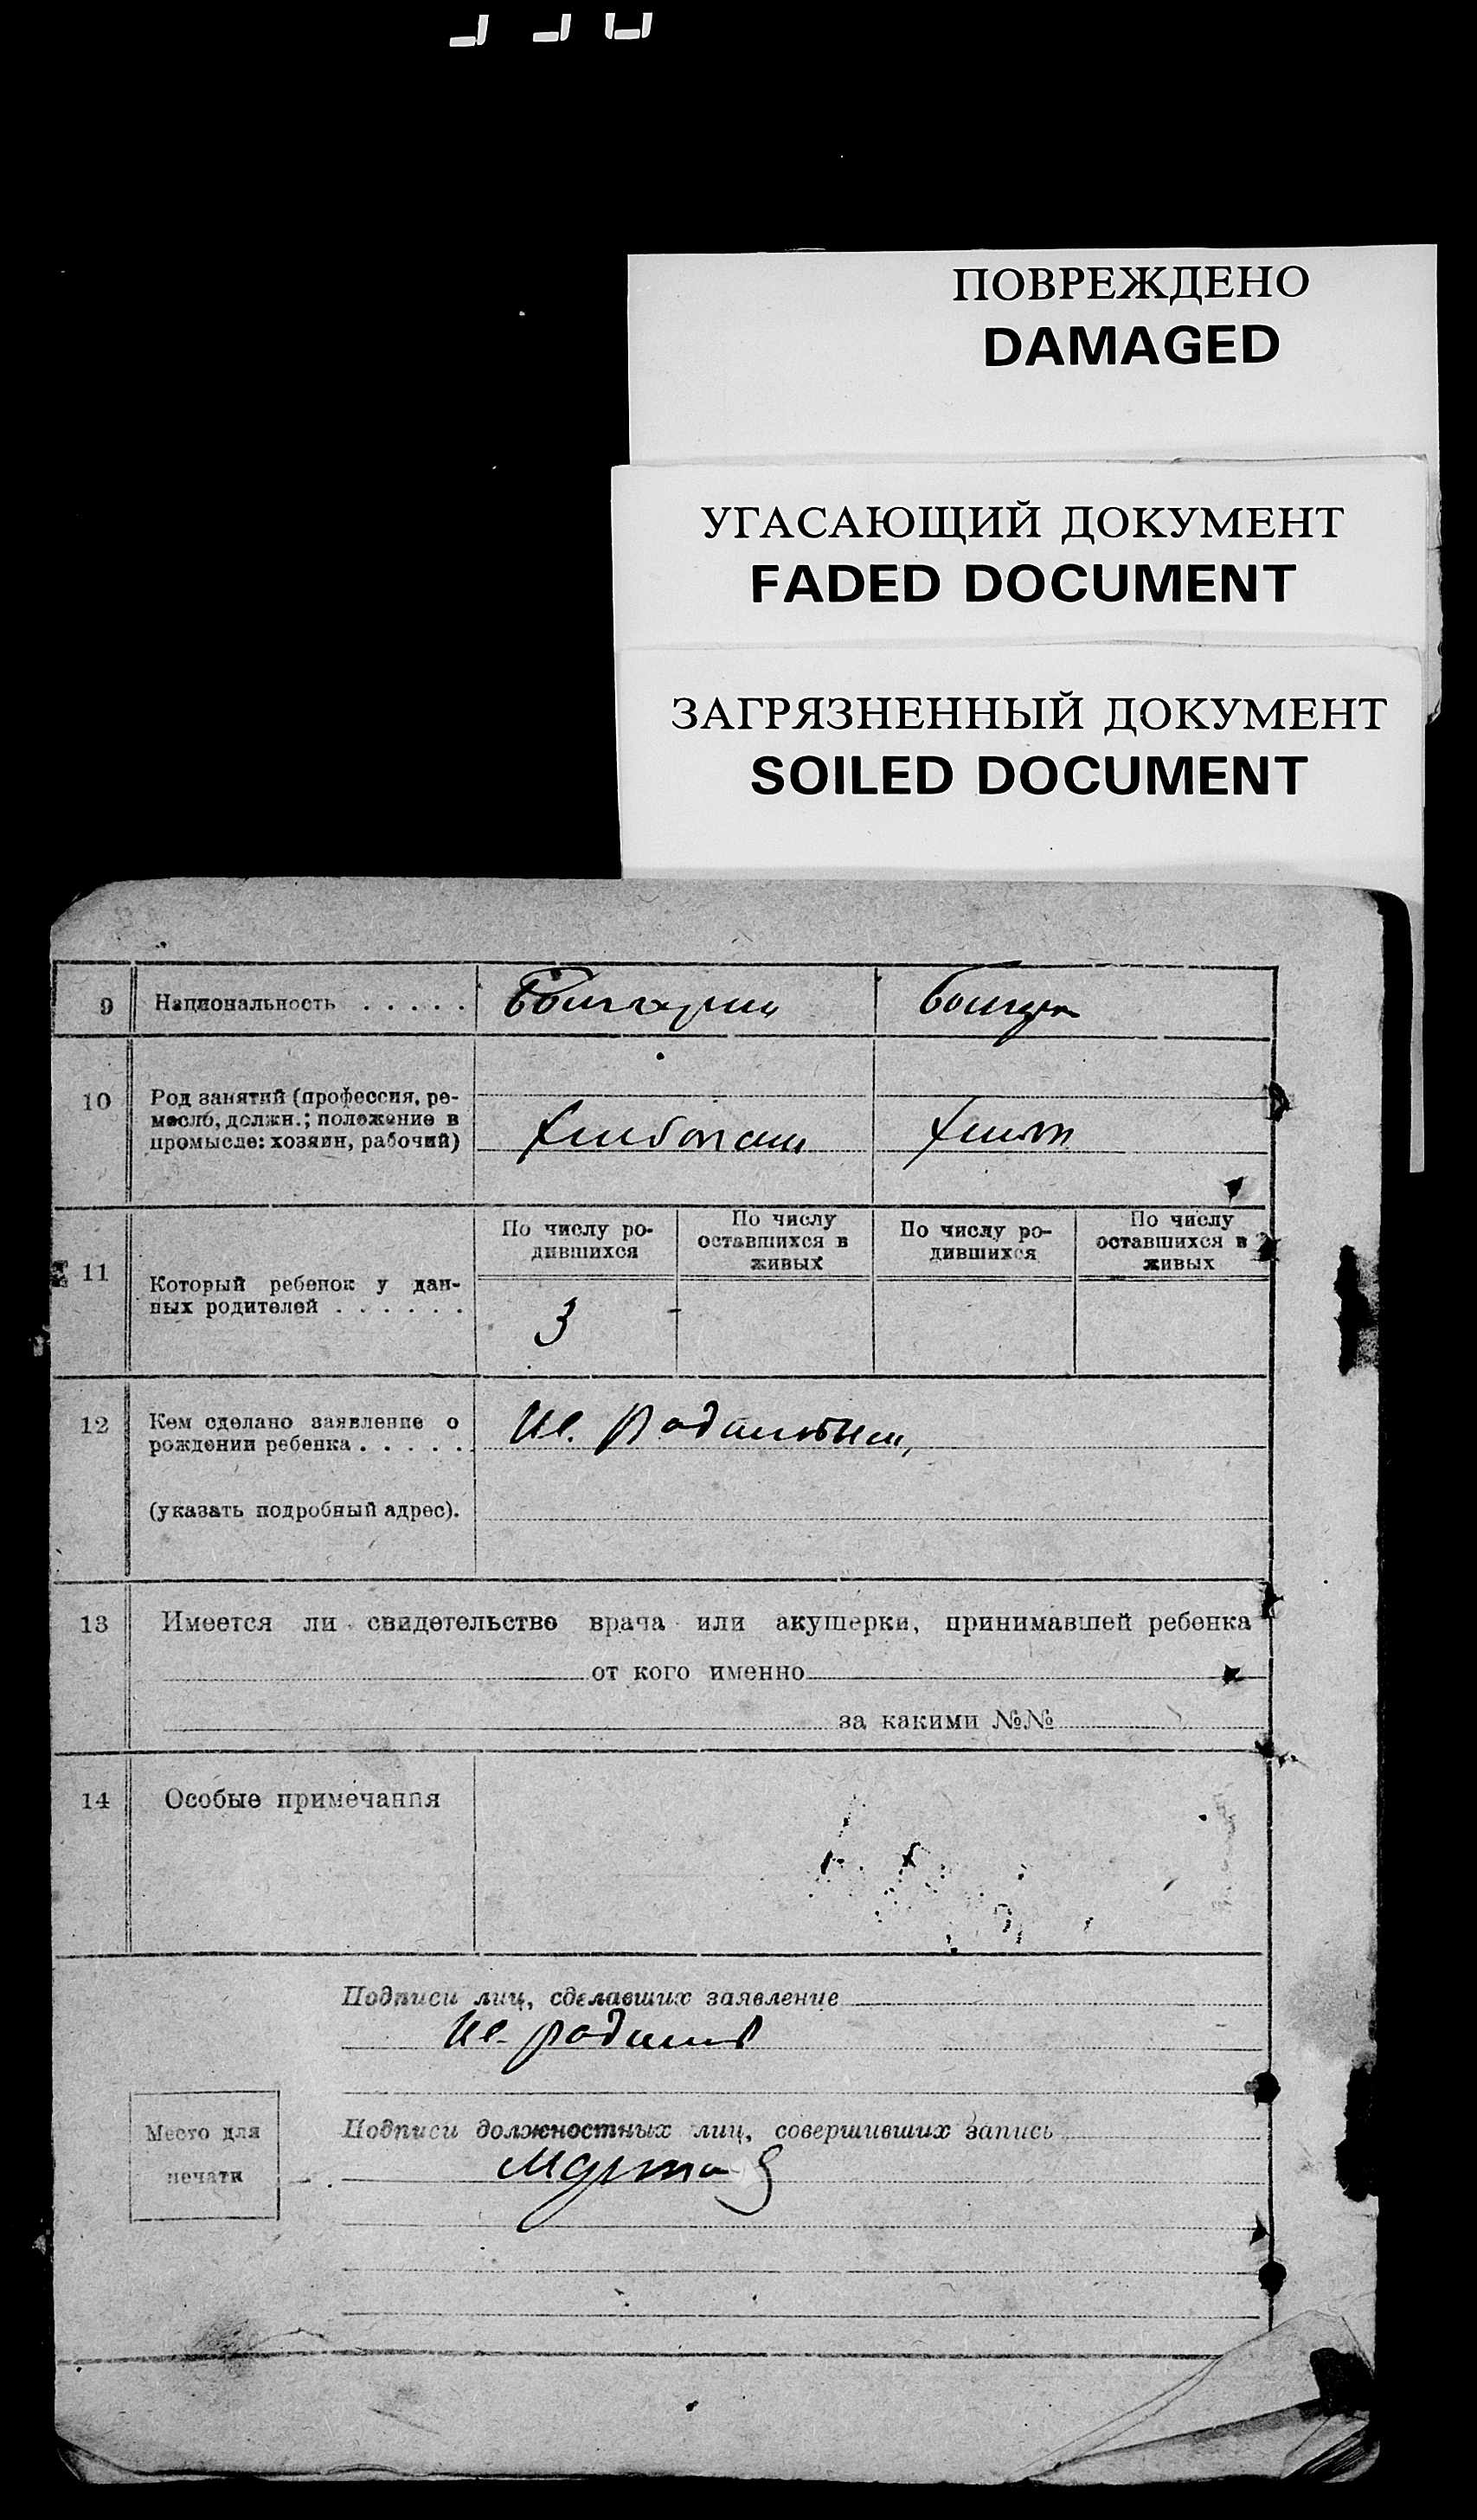 ПОВРЕЖДЕНО
DAMAGED
УГАСАЮЩИЙ ДОКУМЕНТ
FADED DOCUMENT
ЗАГРЯЗНЕННЫЙ ДОКУМЕНТ
SOILED DOCUMENT
9 Национальность . . . . . Болгарин
10 Род занятий (профессия, ре-
месло, должн.; положение в
промысле: хозяин, рабочий)
По числу ро- По числу По числу ро- По числу
дившихся оставшихся в дившихся оставшихся в
живых живых
11 Который ребенок у дан-
ных родителей . . . . . . 3
12 Кем сделано заявление о
рождении ребенка . . . . .
(указать подробный адрес).
13 Имеется ли свидетельство врача или акушерки, принимавшей ребенка
от кого именно
за какими №№
14 Особые примечания
Подписи лиц, сделавших заявление
Место для
печати
Подписи должностных лиц, совершивших запись